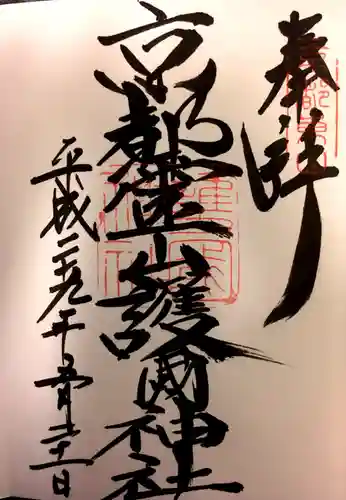 奉拝
京都霊山護國神社
平成二十九年五月二十一日